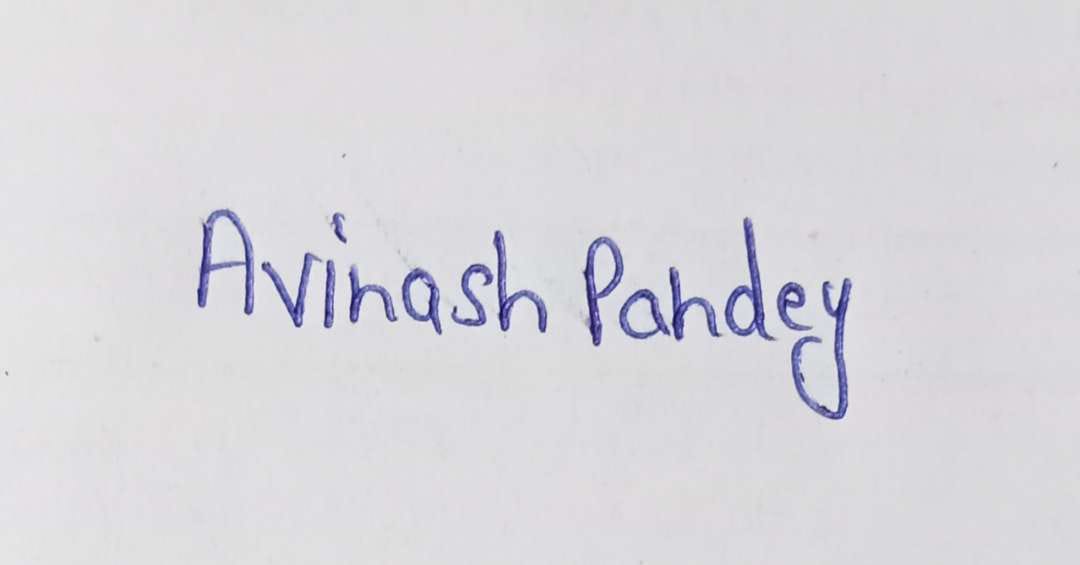 Avinash Pandey